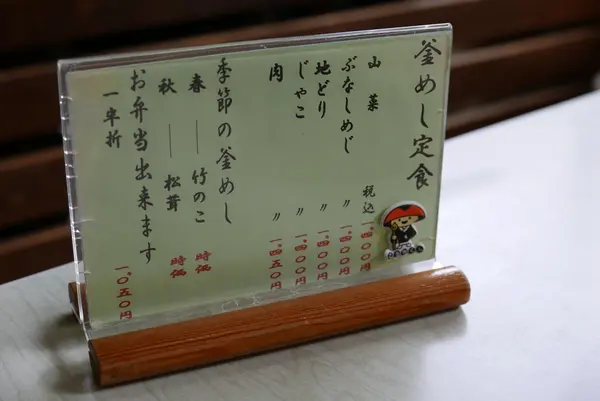 釜めし定食
山菜 税込 一、四〇〇円
ぶなしめじ 〃 一、四〇〇円
地どり 〃 一、四〇〇円
じゃこ 〃 一、四〇〇円
肉 〃 一、四五〇円
季節の釜めし
春 ― 竹のこ 時価
秋 ― 松茸 時価
お弁当出来ます
一半折 一、〇五〇円